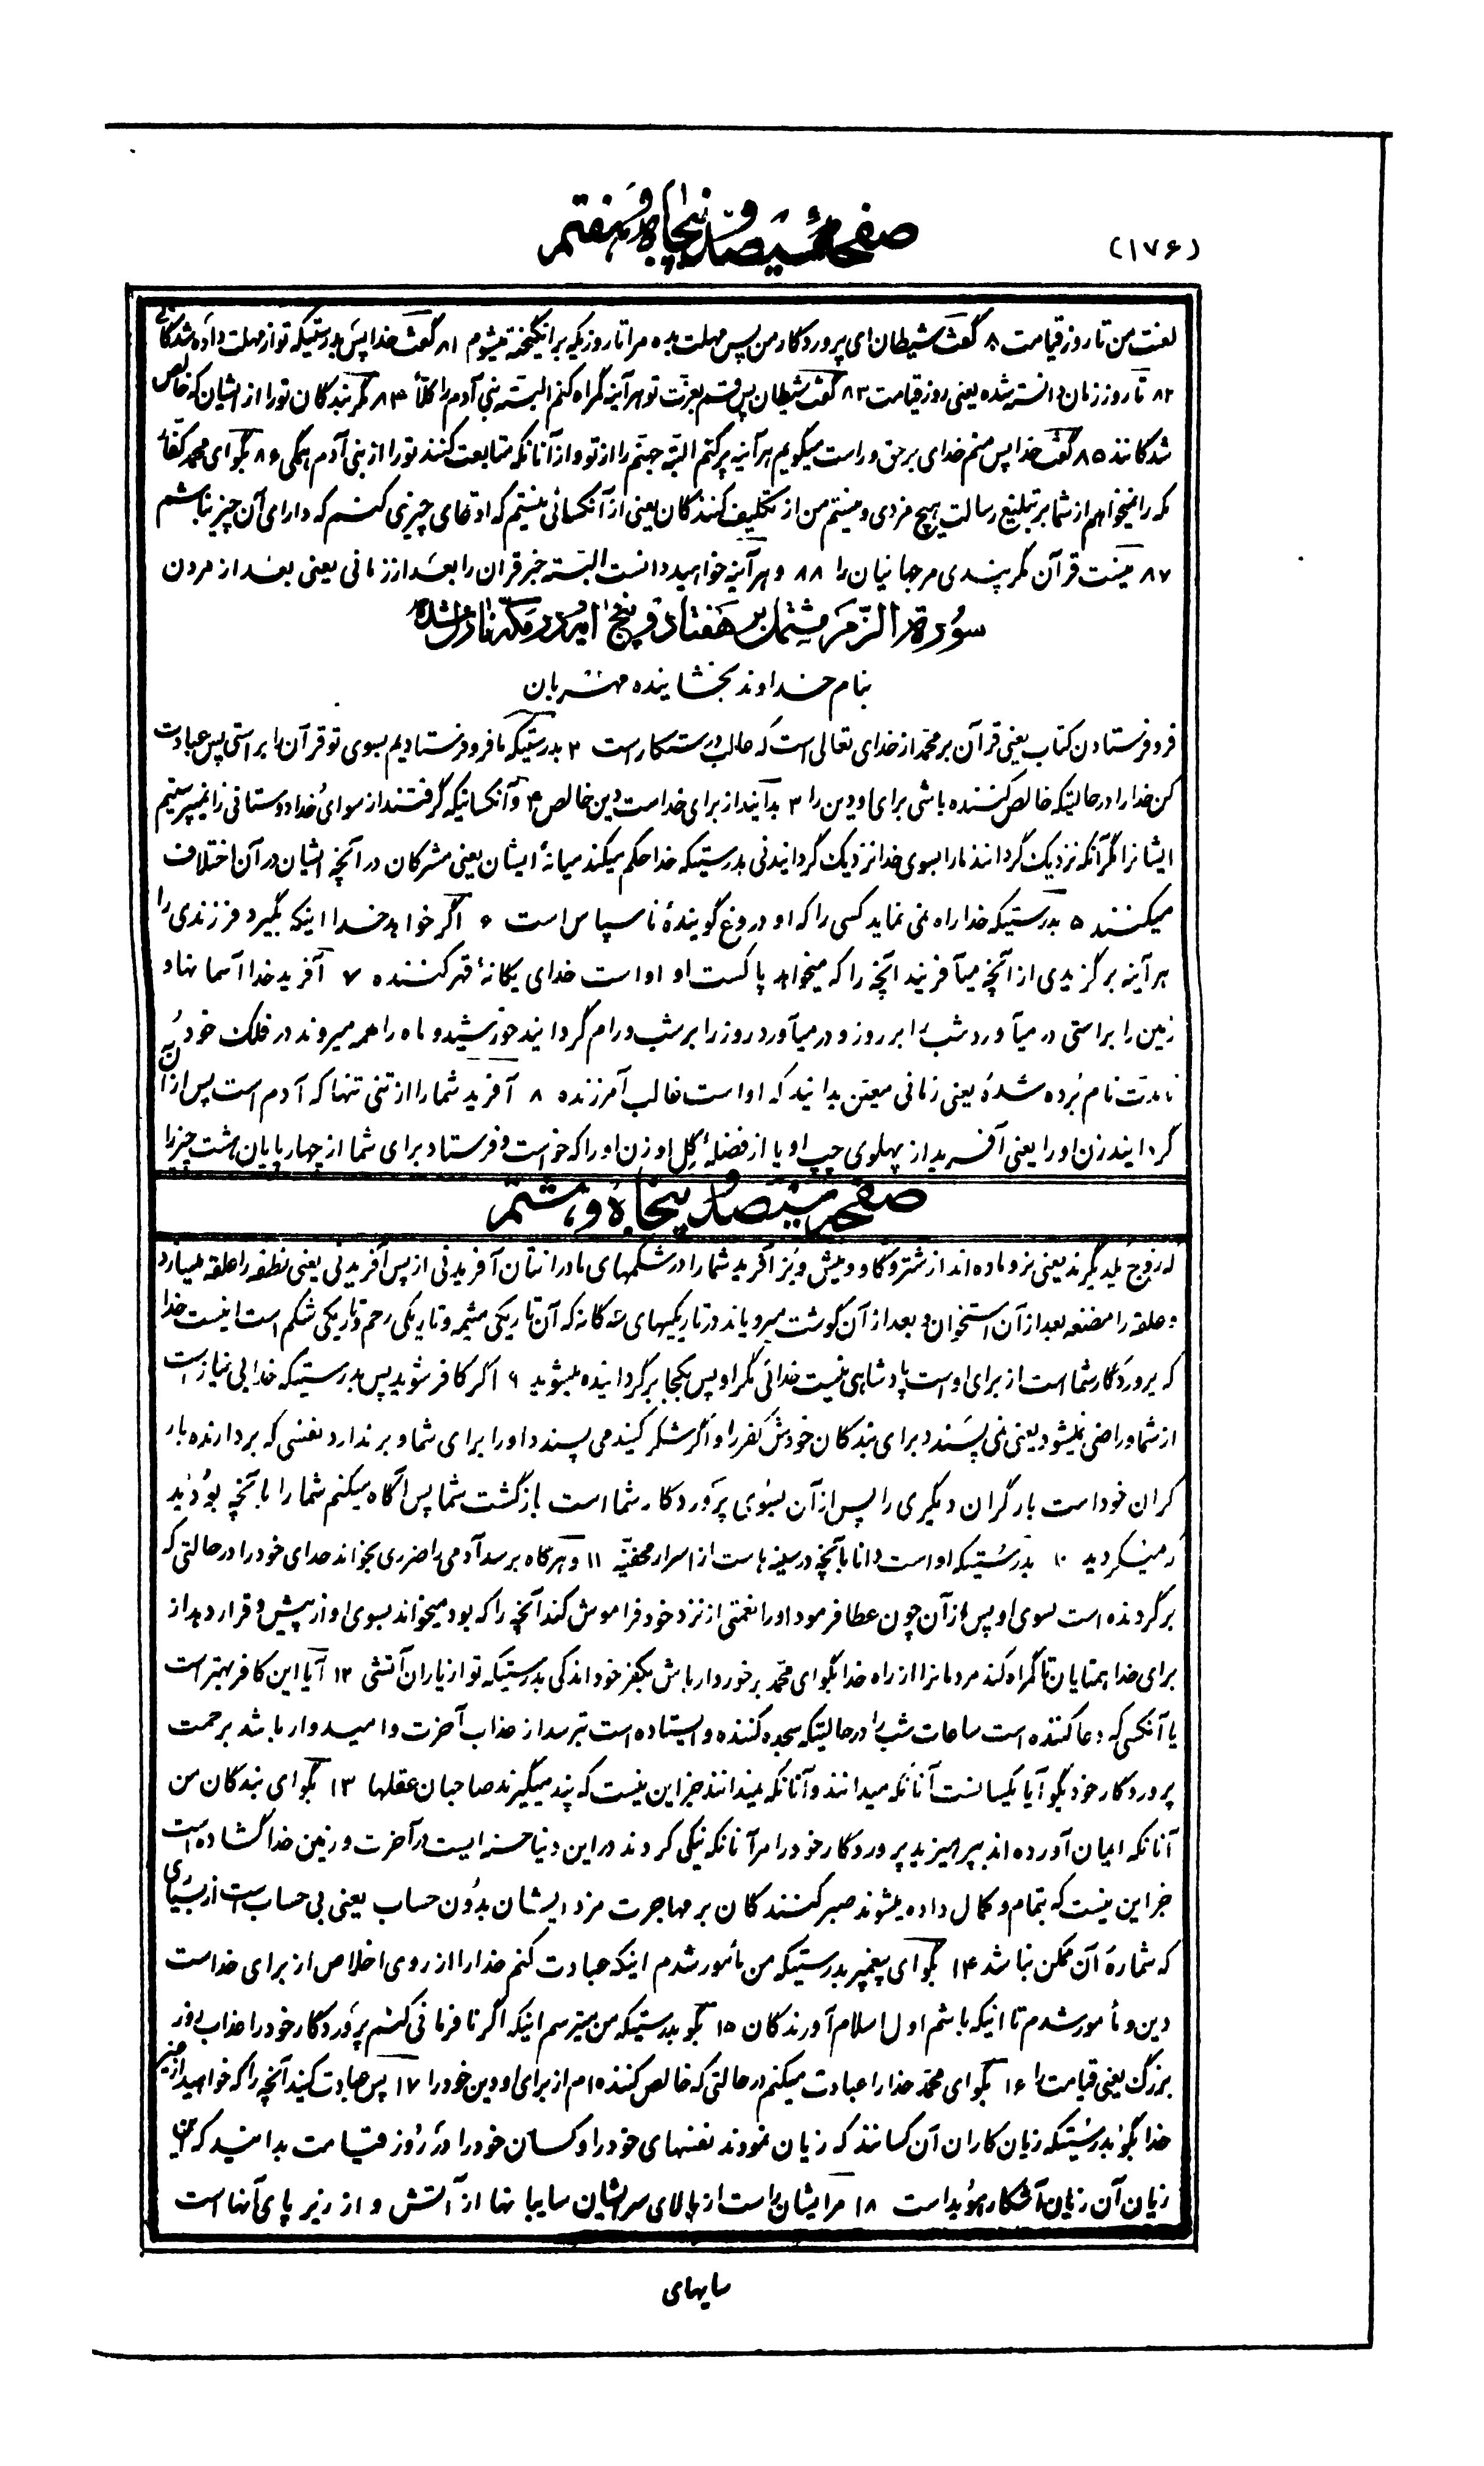 (۱۷۶)
صفحهٔ سیصد و پنجاه و هفتم
لعنت من تا روز قیامت ۸۰ گفت شیطان ای پروردگار من پس مهلت بده مرا تا روزیکه برانگیخته میشوم ۸۱ گفت خدا پس بدرستیکه تو از مهلت داده شدگانی
۸۲ تا روز زمان دانسته شده یعنی روز قیامت ۸۳ گفت شیطان پس قسم بعزت تو هر آینه گمراه کنم البته بنی آدم را کلاً ۸۴ مگر بندگان تو را از ایشان که خالص
شدگانند ۸۵ گفت خدا پس منم خدای بر حق و راست میگویم هر آینه پر کنم البته جهنم را از تو و از آنانکه متابعت کنند تو را از بنی آدم همگی ۸۶ بگو ای محمد کفار
مکه را نمیخواهم از شما بر تبلیغ رسالت هیچ مزدی و نیستم من از تکلیف کنندگان یعنی از آنکسانی نیستم که ادعای چیزی کنم که دارای آن چیز نباشم
۸۷ نیست قرآن مگر پندی مر جهانیان را ۸۸ و هر آینه خواهید دانست البته خبر قران را بعد از زمانی یعنی بعد از مردن
سورة الزمر مشتمل بر هفتاد و پنج آیه در مکه نازل شده
بنام خداوند بخشاینده مهربان
فرو فرستادن کتاب یعنی قرآن بر محمد از خدای تعالی است که غالب درستکار است ۲ بدرستیکه ما فرو فرستادیم بسوی تو قرآن را براستی پس عبادت
کن خدا را در حالتیکه خالص کننده باشی برای او دین را ۳ بدانید از برای خداست دین خالص ۴ و آنکسانیکه گرفتند از سوای خدا دوستانی را نمیپرستیم
ایشانرا مگر آنکه نزدیک گردانند ما را بسوی خدا نزدیک گردانیدنی بدرستیکه خدا حکم میکند میانهٔ ایشان یعنی مشرکان در آنچه ایشان در آن اختلاف
میکنند ۵ بدرستیکه خدا راه نمی نماید کسی را که او دروغ گویندهٔ ناسپاس است ۶ اگر خواهد خدا اینکه بگیرد فرزندی را
هر آینه برگزیدی از آنچه میآفریند آنچه را که میخواهد پاکست او او است خدای یگانهٔ قهر کننده ۷ آفرید خدا آسمانها و
زمین را براستی در میآورد شب را بر روز و در میآورد روز را بر شب و رام گردانید خورشید و ماه را همه میروند در فلک خود
تا مدت نام برده شدهٔ یعنی زمانی معین بدانید که او است غالب آمرزنده ۸ آفرید شما را از تنی تنها که آدم است پس از آن
گردانید زن او را یعنی آفرید از پهلوی چپ او یا از فضلهٔ گل او زن او را که حواست و فرستاد برای شما از چهار پایان هشت چیز را
صفحه سیصد و پنجاه و هشتم
که زوج یکدیگرند یعنی نر و ماده اند از شتر و گاو و میش و بز آفرید شما را در شکمهای مادرانتان آفریدنی از پس آفریدنی یعنی نطفه را علقه میسازد
و علقه را مضغه بعد از آن استخوان و بعد از آن گوشت میرویاند در تاریکیهای سه گانه که آن تاریکی مشیمه و تاریکی رحم و تاریکی شکم است اینست خدا
که پروردگار شما است از برای او است پادشاهی نیست خدائی مگر او پس بکجا برگردانیده میشوید ۹ اگر کافر شوید پس بدرستیکه خدا بی نیاز است
از شما و راضی نمیشود یعنی نمی پسندد برای بندگان خودش کفر را و اگر شکر کنید می پسندد او را برای شما و بر ندارد نفسی که بردارنده بار
گران خود است بار گران دیگری را پس از آن بسوی پروردگار شما است بازگشت شما پس آگاه میکنم شما را بآنچه بودید
که میکردید ۱۰ بدرستیکه او است دانا بآنچه در سینه ها ست از اسرار مخفیه ۱۱ و هر گاه برسد آدمی را ضرری بخواند خدای خود را در حالتی که
بر گردنده است بسوی او پس از آن چون عطا فرمود او را نعمتی از نزد خود فراموش کند آنچه را که بود میخواند بسوی او از پیش و قرار دهد از
برای خدا همتایان تا گمراه کند مردمانرا از راه خدا بگو ای محمد برخوردار باش بکفر خود اندکی بدرستیکه تو از یاران آتشی ۱۲ آیا این کافر بهتر است
یا آنکسی که دعا کننده است ساعات شب را در حالتیکه سجده کننده و ایستاده است بترسد از عذاب آخرت و امیدوار باشد برحمت
پروردگار خود بگو آیا یکسانست آنانکه میدانند و آنانکه نمیدانند جز این نیست که پند میگیرند صاحبان عقلها ۱۳ بگو ای بندگان من
آنانکه ایمان آورده اند بپرهیزید پروردگار خود را مر آنانکه نیکی کردند در این دنیا حسنه ایست در آخرت و زمین خدا گشاده است
جز این نیست که بتمام و کمال داده میشوند صبر کنندگان بر مهاجرت مزد ایشان بدون حساب یعنی بی حساب است از بسیاری
که شماره آن ممکن نباشد ۱۴ بگو ای پیغمبر بدرستیکه من مأمور شدم اینکه عبادت کنم خدا را از روی اخلاص از برای خداست
دین و مأمور شدم تا اینکه باشم اول اسلام آورندگان ۱۵ بگو بدرستیکه من میترسم اینکه اگر نافرمانی کنم پروردگار خود را عذاب روز
بزرگ یعنی قیامت را ۱۶ بگو ای محمد خدا را عبادت میکنم در حالتی که خالص کننده ام از برای او دین خود را ۱۷ پس عبادت کنید آنچه را که خواهید از غیر
خدا بگو بدرستیکه زیان کاران آن کسانند که زیان نمودند نفسهای خود را و کسان خود را در روز قیامت بدانید که این
زیان آن زیان آشکار هویداست ۱۸ مر ایشان راست از بالای سر ایشان سایبانها از آتش و از زیر پای آنها است
سایهای